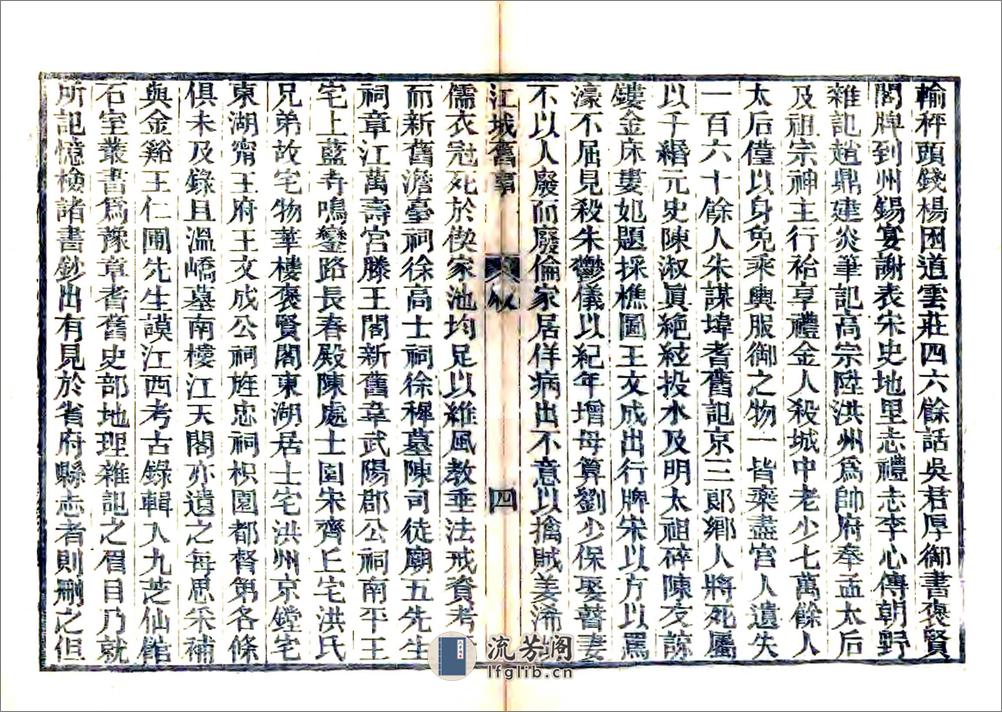 輸秤頭錢楊囦道雲莊四六餘話吳君厚御書褒賢
閣牌到州錫宴謝表宋史地里志禮志李心傳朝野
雜記趙鼎建炎筆記高宗陞洪州爲帥府奉孟太后
及祖宗神主行祫享禮金人殺城中老少七萬餘人
太后僅以身免乘輿服御之物一皆棄盡宮人遺失
一百六十餘人朱謀㙔耆舊記京三郎鄉人將死屬
以千緡元史陳淑眞絶絃投水及明太祖碎陳友諒
鏤金床婁妃題採樵圖王文成出行牌宋以方以罵
濠不屈見殺朱鬱儀以紀年增母算劉少保娶瞽妻
不以人廢而廢倫家居佯病出不意以擒賊姜浠
江城舊事 叙 四
儒衣冠死於偰家池均足以維風敎垂法戒資考
而新舊澹臺祠徐高士祠徐穉墓陳司徒廟五先生
祠章江萬壽宮滕王閣新舊章武陽郡公祠南平王
宅上藍寺鳴鑾路長春殿陳處士園宋齊丘宅洪氏
兄弟故宅物華樓褒賢閣東湖居士宅洪州京鏜宅
東湖甯王府王文成公祠旌忠祠枳園都督第各條
俱未及錄且溫嶠墓南樓江天閣亦遺之每思采補
與金谿王仁圃先生謨江西考古錄輯入九芝仙館
石室叢書爲豫章耆舊史部地理雜記之眉目乃就
所記憶檢諸書鈔出有見於省府縣志者則刪之但
流芳閣
lfglib.cn